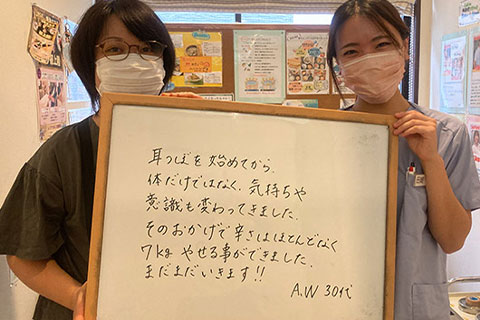 耳つぼを始めてから、
体だけではなく、気持ちや
意識も変わってきました。
そのおかげで辛さはほとんどなく
7kgやせる事ができました。
まだまだいきます!!
A.W 30代